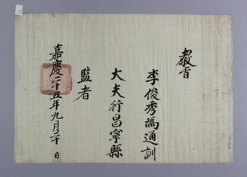 敎旨
李俊秀爲通訓
大夫行昌寧縣
監者
嘉慶二十五年九月二十日